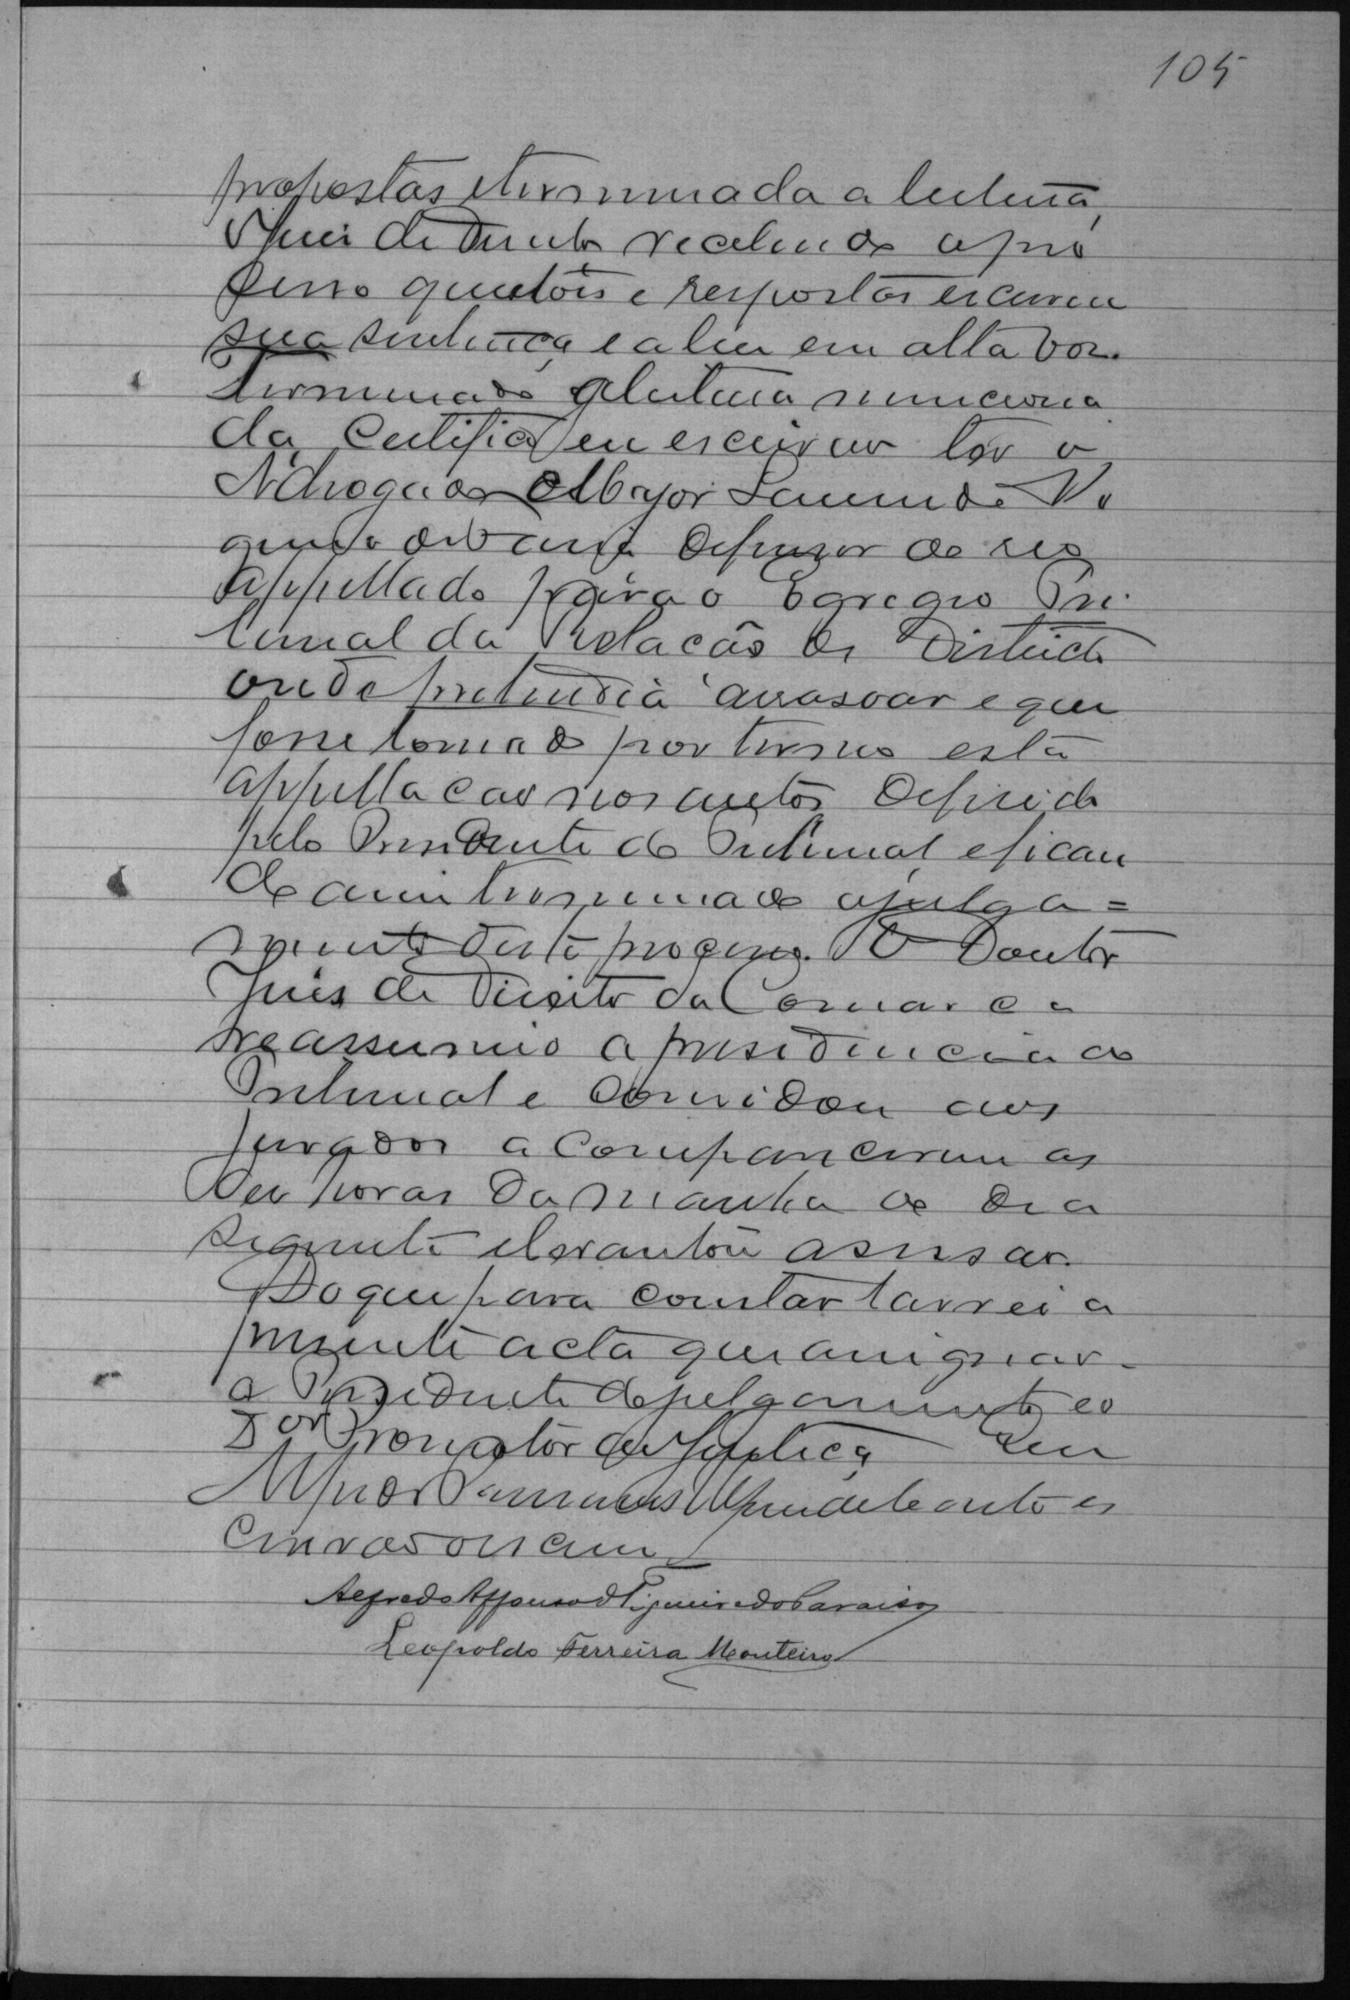 105
propostas e terminada a leitura,
o Juiz de Direito recebendo o pro
cesso questões e respostas escreveu
sua sentença e a leu em alta voz.
Terminado a leitura menciona
da, certifica eu escrivão ter o
Advogado Major
defensor do reo
appellado para o Egregio Tri
bunal da Relacão do Districto
onde pretendia arrasoar e que
fosse tomado por termo esta
appellacão nos autos deferido
pelo Presidente do Tribunal, e fican
do assim terminado o julga=
mento deste processo. O Doutor
Juis de Direito da Comarca
reassumio a presidencia do
Tribunal e convidou aos
jurados a comparecerem as
dez horas da manha do dia
seguinte e levantou a sessão.
Do que para constar lavrei a
presente acta que assignão
o Presidente do julgamento e o
Dor Promotor da Justiça Eu
escrivão o escrevi
Alfredo Affonso de Figueiredo Paraiso
Leopoldo Ferreira Monteiro